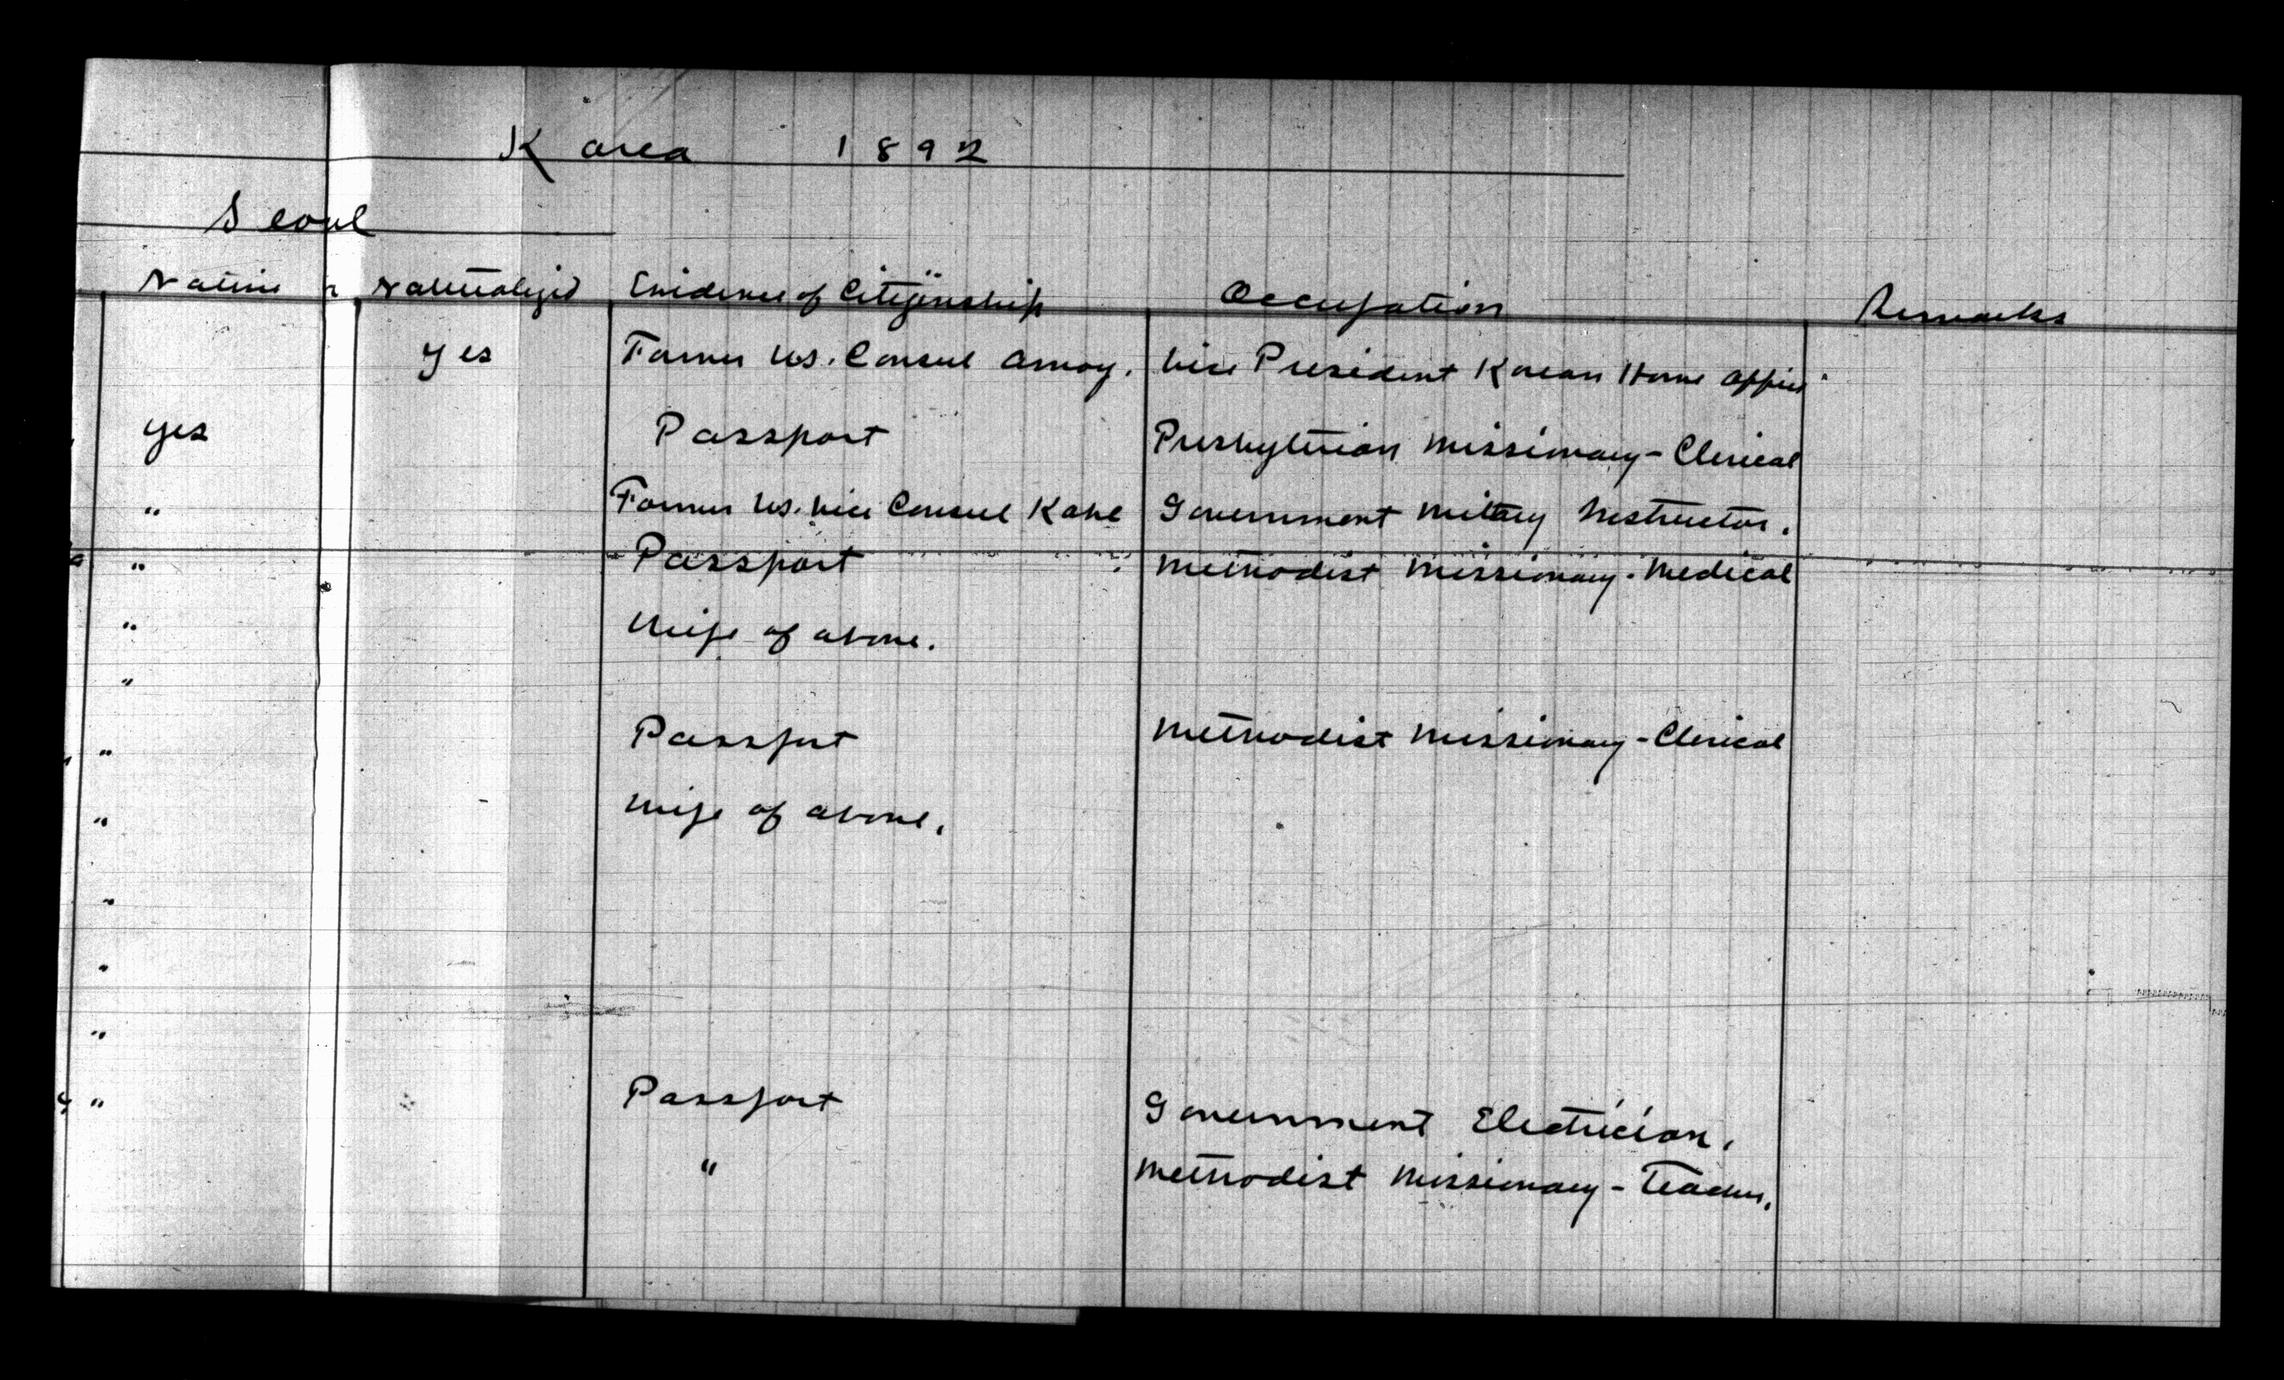 Korea 1892
Seoul
Native r Naturalized Evidence of Citizenship Occupation Remarks
yes Former U.S. Consul Amoy. Vice President Korean Home Office
yes Passport Presbyterian Missionary - Clerical
" Former U.S. Vice Consul Kobe Government Military Instructor.
" Passport Methodist Missionary. Medical
" Wife of above.
"
" Passport Methodist Missionary - Clerical
" Wife of above.
"
"
"
" Passport Government Electrician.
" Methodist Missionary - Teacher.